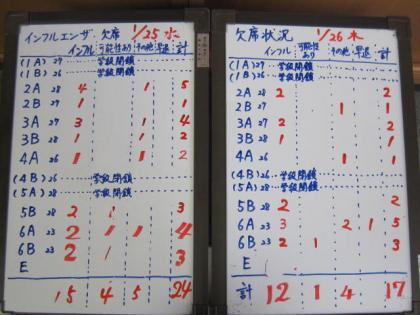 インフルエンザ 欠席 1/25 水
インフル 可能性あり その他 早退 計
(1A) 27 学級閉鎖
(1B) 26 学級閉鎖
2A 28 4 1 5
2B 27 1 1
3A 27 3 1 4
3B 28 1 1 2
4A 26 1 1 2
(4B) 26 学級閉鎖
(5A) 28 学級閉鎖
5B 28 2 1 3
6A 23 2 1 1 4
6B 23 2 1 3
E
15 4 5 24
欠席状況 1/26 木
インフル 可能性あり その他 早退 計
(1A) 27 学級閉鎖
(1B) 26 学級閉鎖
2A 28 2 2
2B 27 1 1
3A 27 2 2
3B 28 1 1
4A 26 1 1
(4B) 26 学級閉鎖
(5A) 28 学級閉鎖
5B 28 2 2
6A 23 3 2 1 5
6B 23 2 1 3
E
計 12 1 4 17